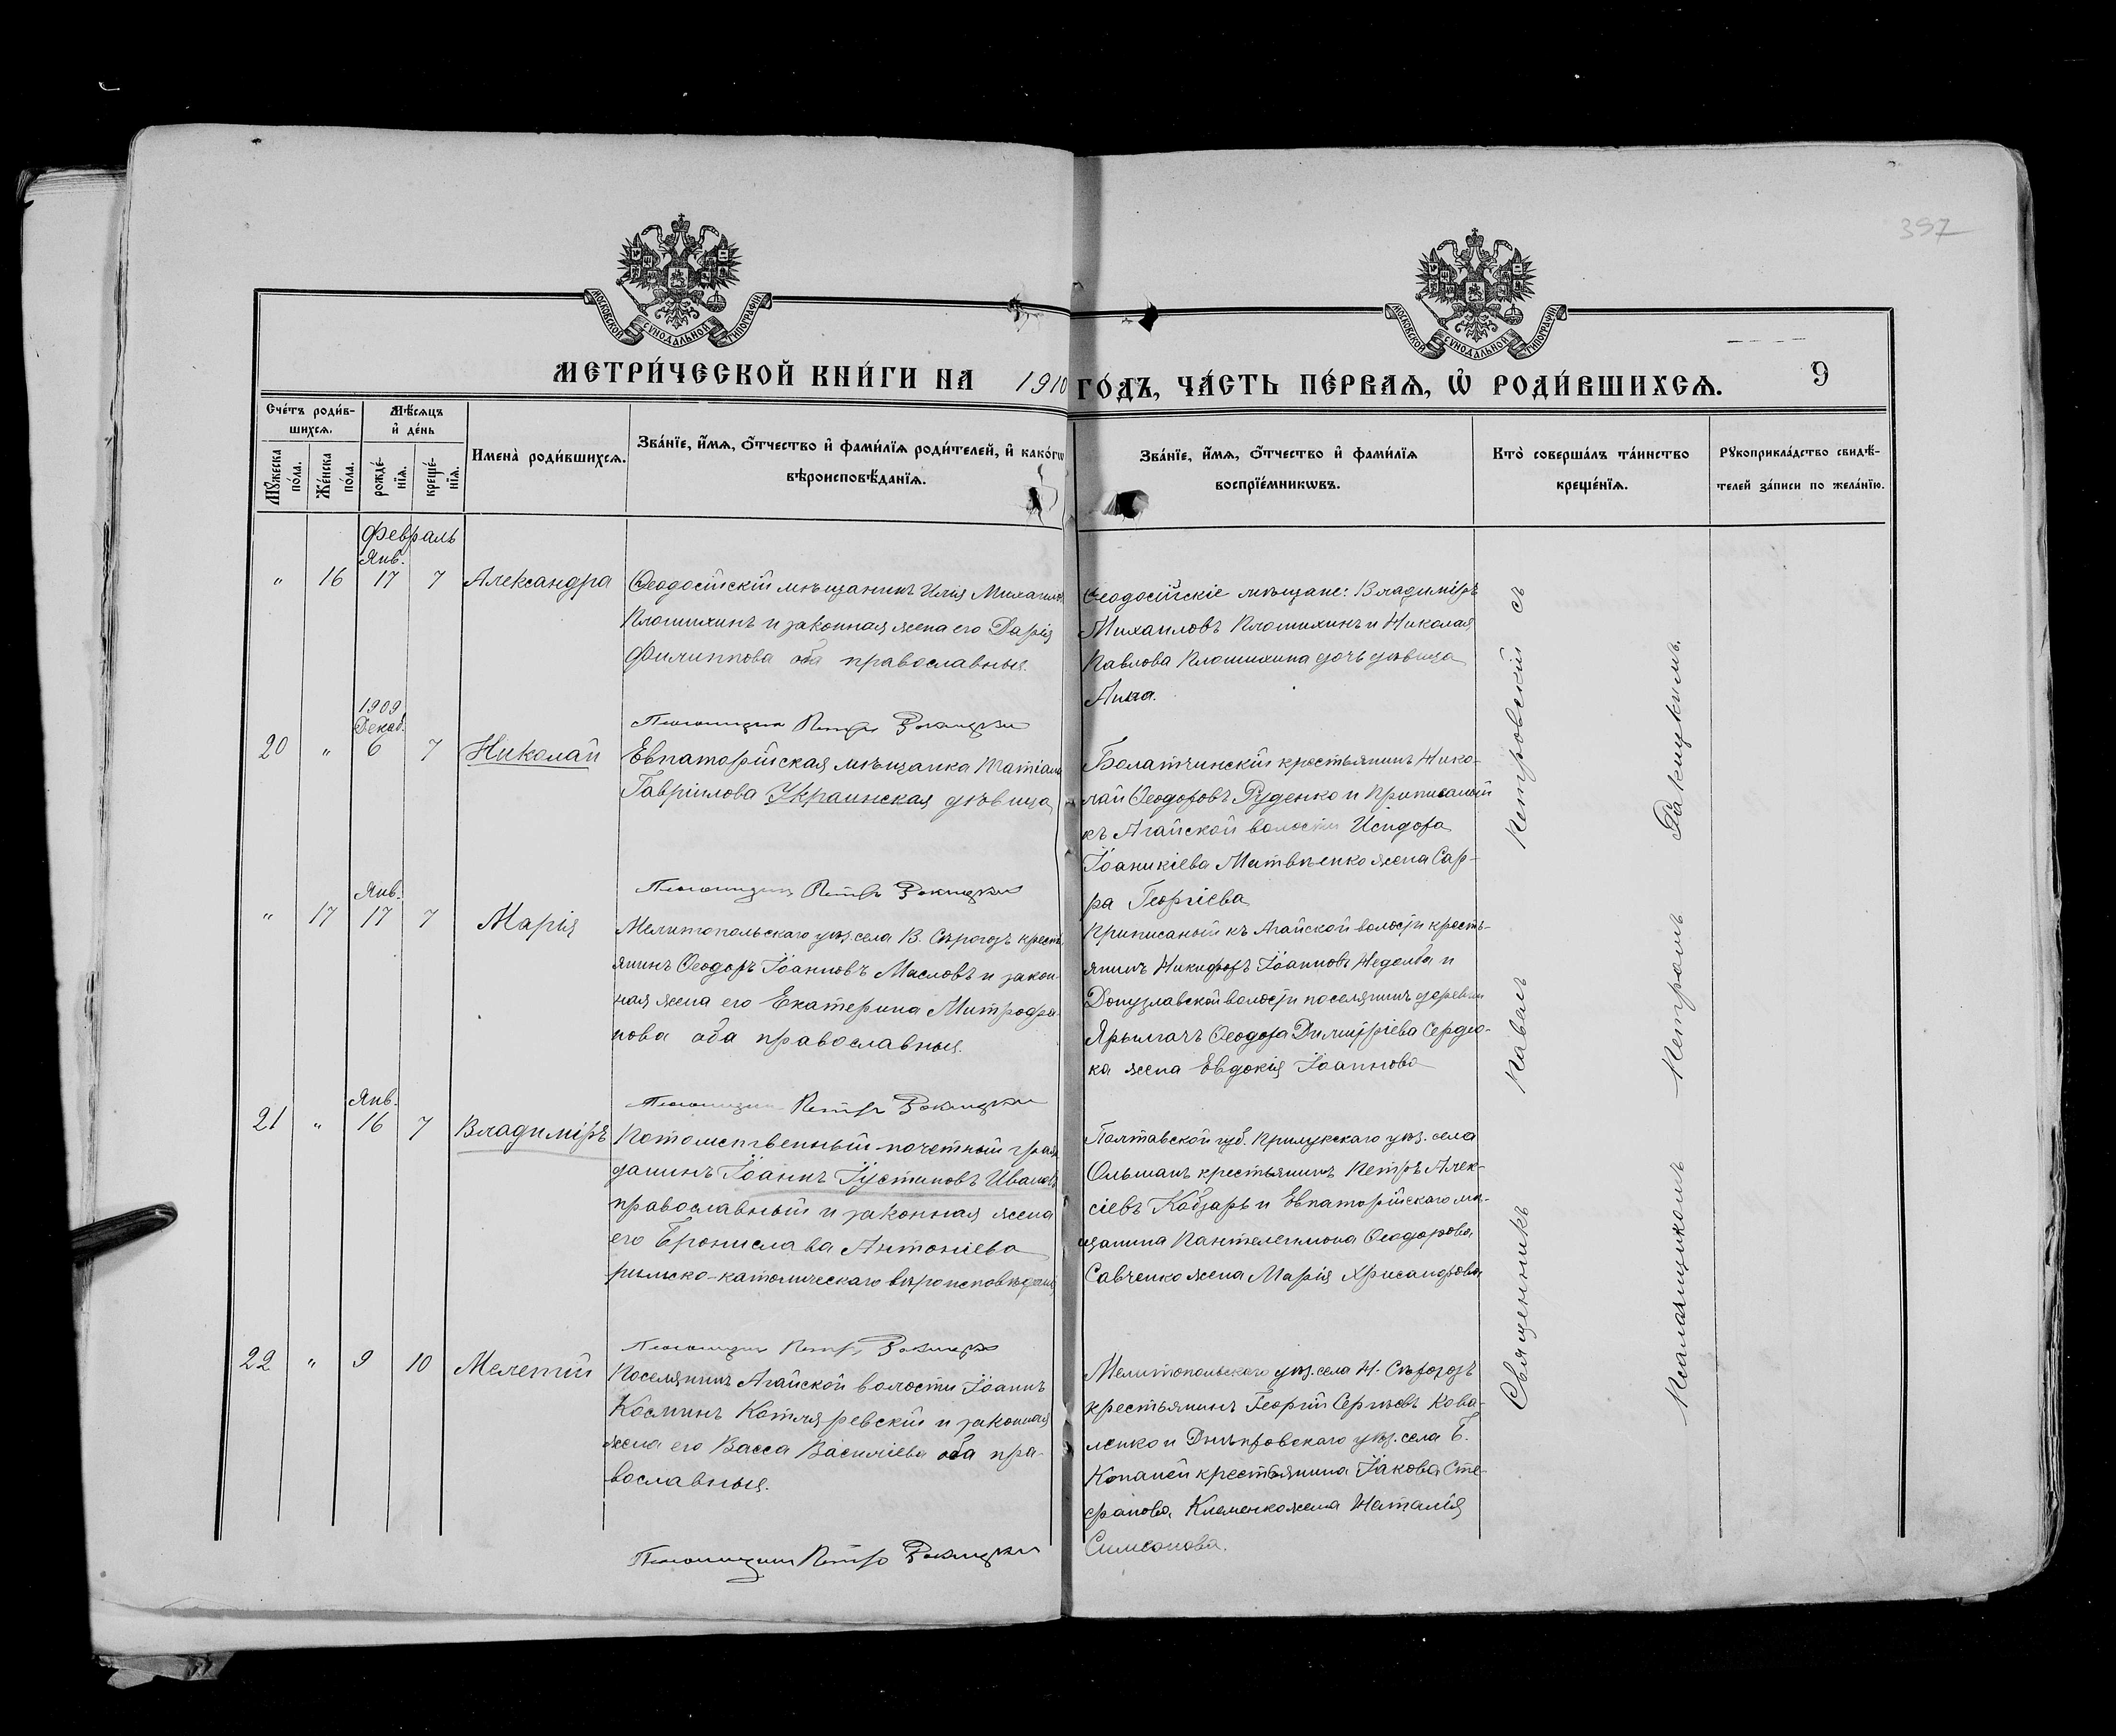 397
МОСКОВСКОЙ СѴНОДАЛЬНОЙ ТИПОГРАФІИ
МОСКОВСКОЙ СѴНОДАЛЬНОЙ ТИПОГРАФІИ
МЕТРИ́ЧЕСКОЙ КНИ́ГИ НА 1910 ГО́ДЪ, ЧА́СТЬ ПЕ́РВАѦ, Ѡ҆ РОДИ́ВШИХСѦ. 9
Сче́тъ роди́в-
шихсѧ.
Мѣ́сѧцъ
и҆ де́нь
Мꙋ́жеска
по́ла.
Же́нска
по́ла.
рожде́-
нїѧ.
креще́-
нїѧ.
Имена̀ роди́вшихсѧ.
Зва́нїе, и҆́мѧ, ѻ҆́тчество и҆ фами́лїѧ роди́телей, и҆ како́гѡ
вѣроисповѣ́данїѧ.
Зва́нїе, и҆́мѧ, ѻ҆́тчество и҆ фами́лїѧ
воспрїе́мникѡвъ.
Кто̀ соверша́лъ та́инство
креще́нїѧ.
Рꙋкоприкла́дство свидѣ́-
телей за́писи по жела́нїю.
Февраль
Янв.
" 16 17 7 Александра
Ѳеодосійскій мѣщанинъ Илія Михаилов
Плошихинъ и законная жена его Дарія
Филиппова оба православные.
Ѳеодосійскіе мѣщане: Владиміръ
Михаиловъ Плошихинъ и Николая
Павлова Плошихина дочь дѣвица
Анна.
Псаломщикъ Петръ Ракицкій
1909
Декаб.
20 " 6 7 Николай
Евпаторійская мѣщанка Татіана
Гавріилова Украинская дѣвица
Болатчинскій крестьянинъ Нико-
лай Ѳеодоровъ Руденко и Приписаной
къ Агайской волости Исидора
Іоаникіева Матвѣенко жена Сар-
ра Георгіева
Псаломщикъ Петръ Ракицкій
Янв.
" 17 17 7 Марія
Мелитопольскаго уѣз. села В. Сѣрогозъ кресть
янинъ Ѳеодоръ Іоанновъ Масловъ и закон-
ная жена его Екатерина Митрофа-
нова оба православные.
Приписаной къ Агайской волости кресть-
янинъ Никифоръ Іоанновъ Недолба и
Донузлавской волости поселянинъ деревни
Ярылгачъ Ѳеодора Димитріева Сердю-
ка жена Евдокія Іоаннова
Псаломщикъ Петръ Ракицкій
Янв.
21 " 16 7 Владиміръ
Потомственный почетный граж
данинъ Іоаннъ Іустиновъ Ивановъ
православный и законная жена
его Бронислава Антоніева
римско-католическаго вѣроисповѣданія
Полтавской губ. Прилукскаго уѣз. села
Ольшанъ крестьянинъ Петръ Алек-
сіевъ Кобзарь и Евпаторійскаго мѣ-
щанина Пантелеимона Ѳеодорова
Савченко жена Марія Хрисанфова
Псаломщикъ Петръ Ракицкій
22 " 9 10 Мелетій
Поселянинъ Агайской волости Іоаннъ
Косминъ Котляревскій и законная
жена его Васса Василіева оба пра-
вославные.
Мелитопольскаго уѣз. села Н. Сѣрогозъ
крестьянинъ Георгій Сергѣевъ Кова-
ленко и Днѣпровскаго уѣз. села Б.
Копаней крестьянина Іакова Сте-
фанова Клеменко жена Наталія
Симеонова.
Псаломщикъ Петръ Ракицкій
Священникъ Павелъ Петровскій съ
Псаломщикомъ Петромъ Ракицкимъ.